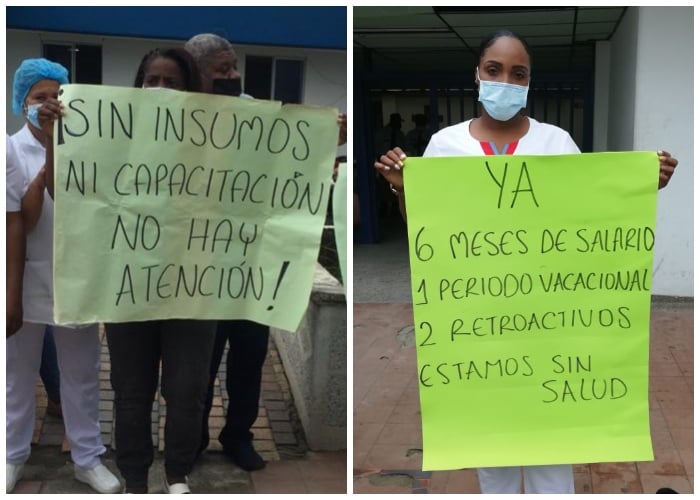 ¡SIN INSUMOS
NI CAPACITACIÓN
NO HAY
ATENCIÓN!
YA
6 MESES DE SALARIO
1 PERIODO VACACIONAL
2 RETROACTIVOS
ESTAMOS SIN
SALUD